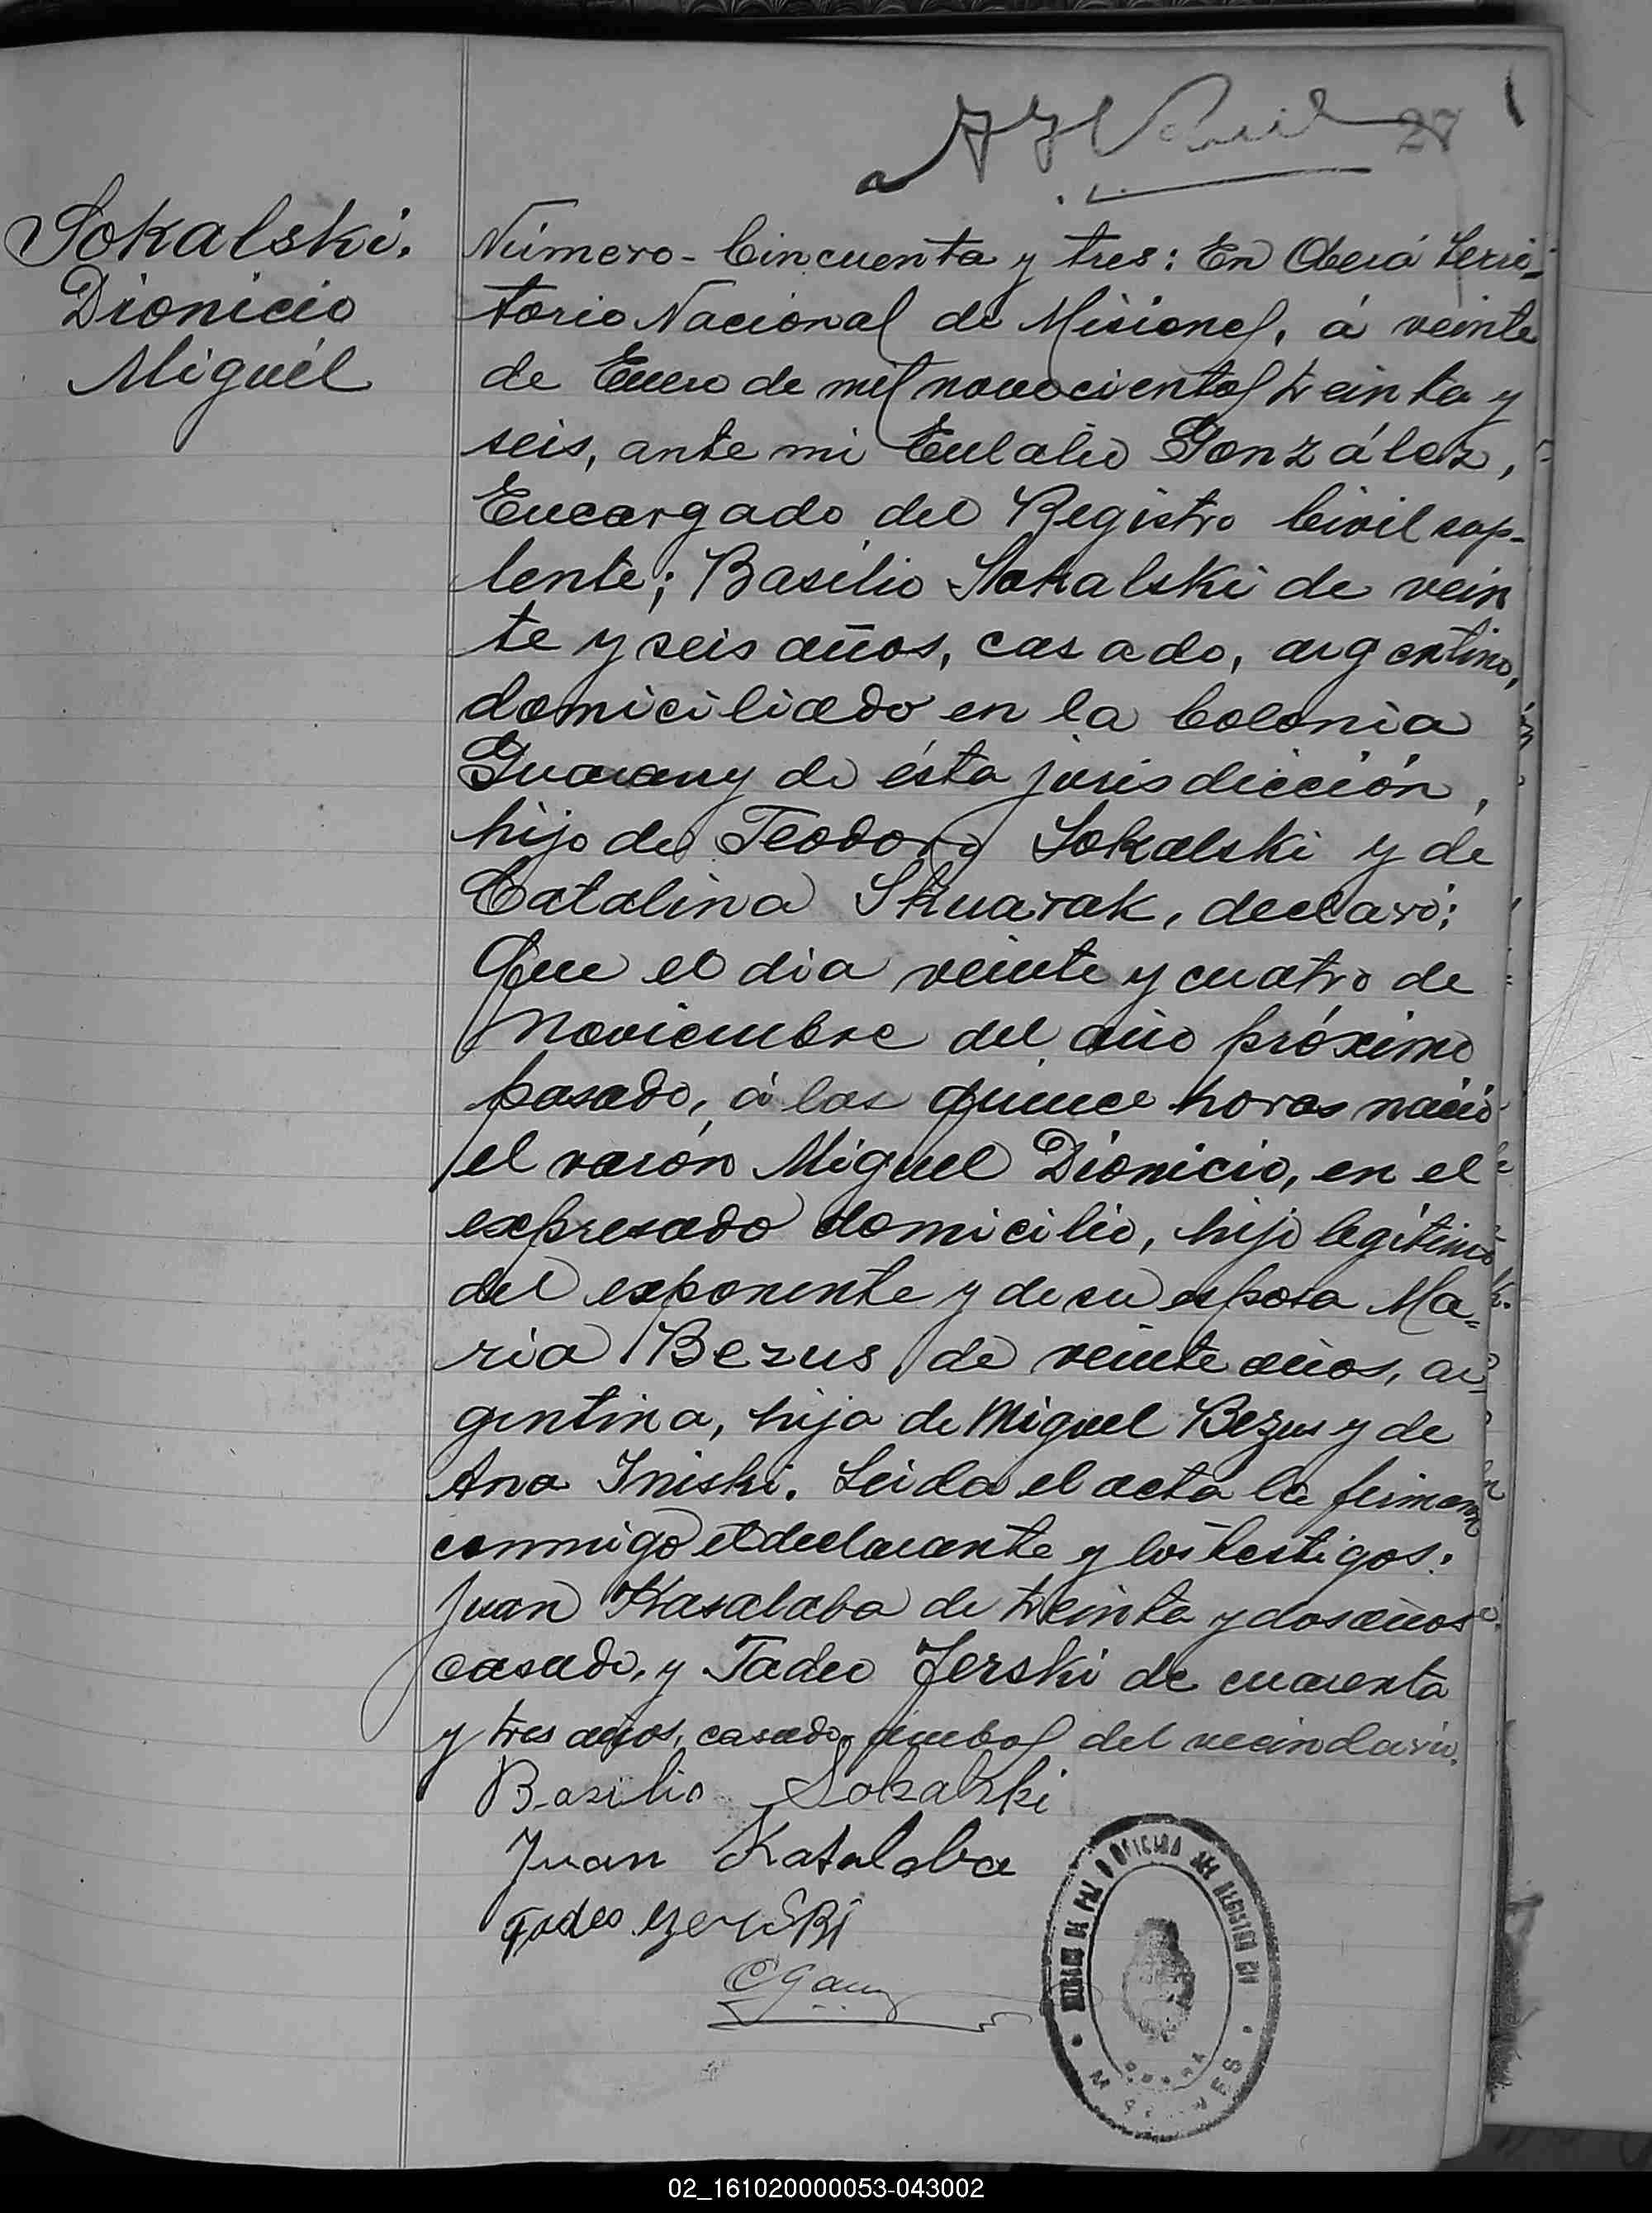 27
Sokalski.
Dionicio
Miguél
Número - Cincuenta y tres: En Oberá Terri-
torio Nacional de Misiones, á veinte
de Enero de mil novocientos treinta y
seis, ante mi Eulalio González,
Encargado del Registro Civil sup-
lente; Basilio Sokalski de vein
te y seis años, casado, argentino,
domiciliado en la Colonia
Guarany de ésta jurisdicción,
hijo de Teodoro Sokalski y de
Catalina Skuarak, declaró:
Que el dia veinte y cuatro de
Noviembre del año próximo
pasado, á las quince horas nació
el varón Miguel Dionicio, en el
expresado domicilio, hijo legítimo
del exponente y de su esposa Ma=
ria Bezus, de veinte años, ar-
gentina, hija de Miguel Bezus y de
Ana Iniski. Leida el acta la firman
conmigo el declarante y los testigos:
Juan Kasalaba de treinta y dos años
casado, y Tadeo Jerski de cuarenta
y tres años, casado, ambos del vecindario.
Basilio Sokalski
Juan Kasalaba
Tadeo
JUZGADO DE PAZ Y OFICINA DEL REGISTRO CIV
OBERA
MISIONES
02_161020000053-043002